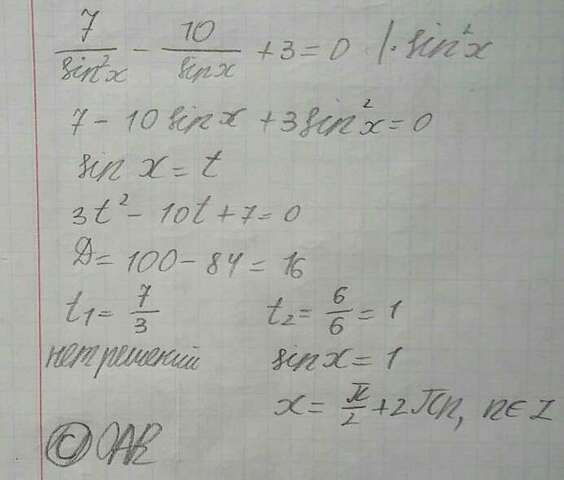 7/sin²x - 10/sinx + 3 = 0 | · sin²x
7 - 10 sin x + 3 sin²x = 0
sin x = t
3t² - 10t + 7 = 0
D = 100 - 84 = 16
t₁ = 7/3 t₂ = 6/6 = 1
нет решений sin x = 1
x = π/2 + 2πn, n ∈ Z
©